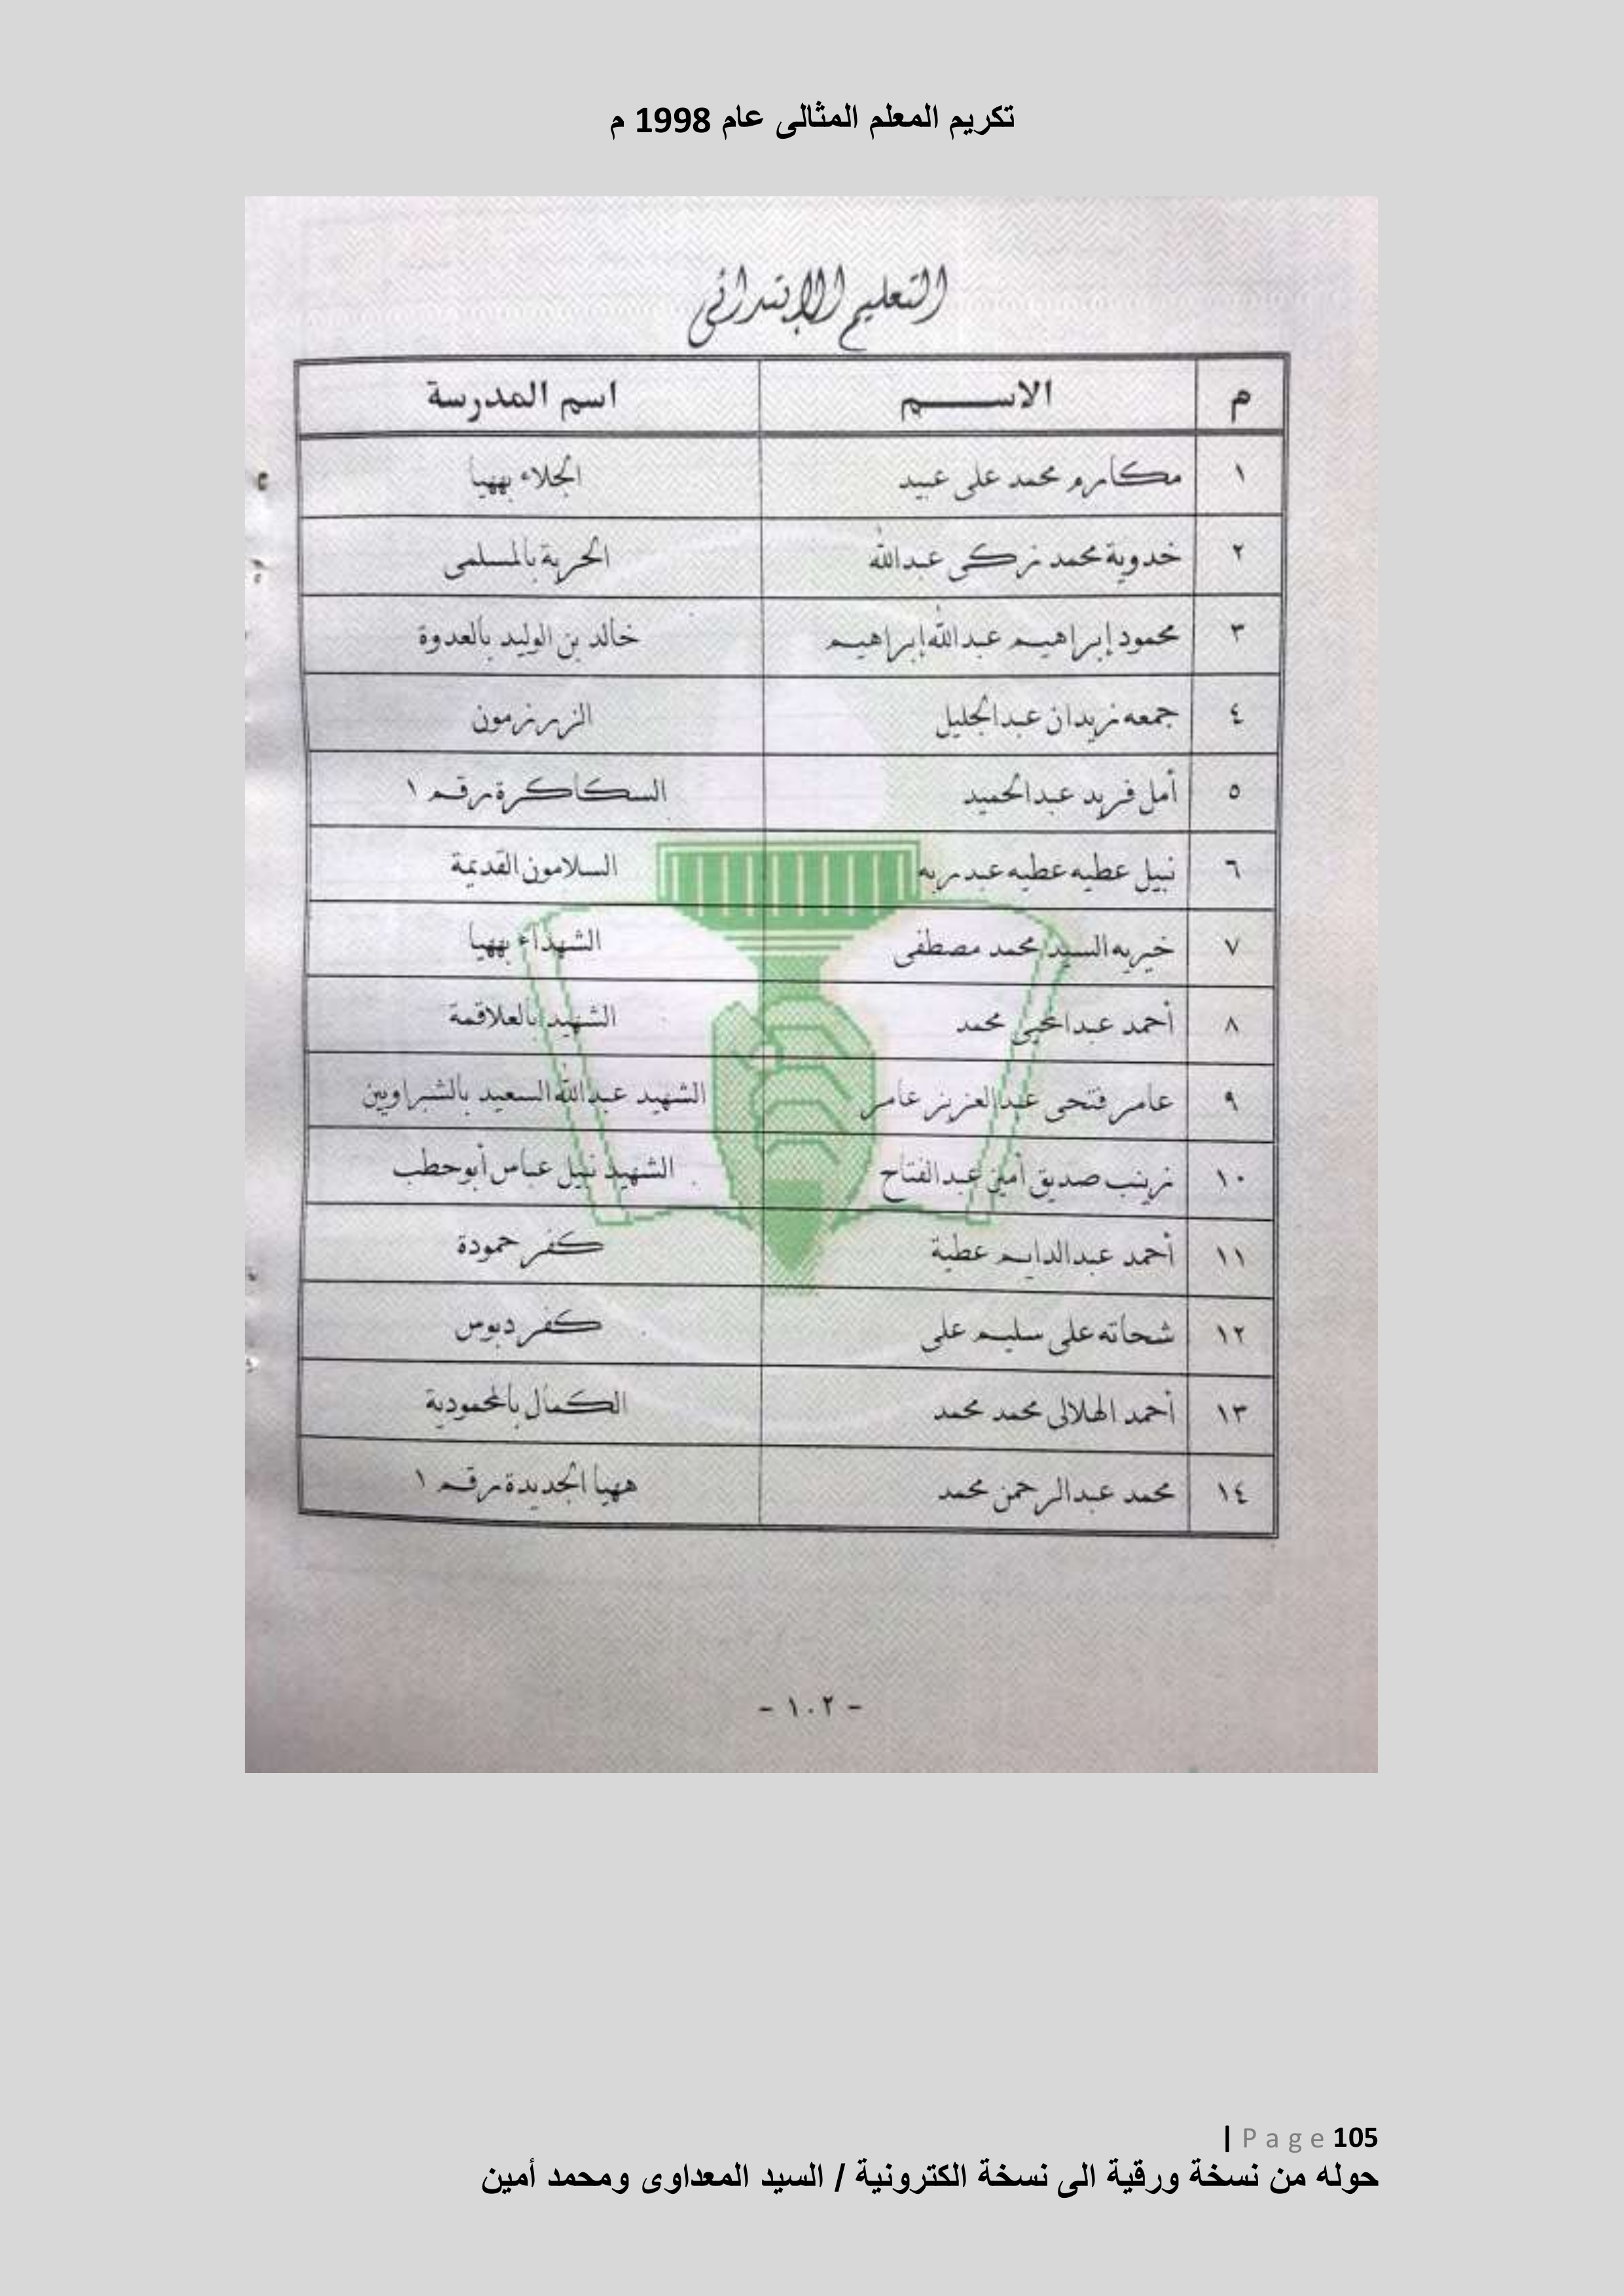 تكريم المعلم المثالى عام 1998 م
التعليم الإبتدائى
م الاســـــم اسم المدرسة
١ مكارم محمد على عبيد الجلاء بههيا
٢ خدوية محمد زكى عبدالله الحرية بالمسلمى
٣ محمود إبراهيم عبدالله إبراهيم خالد بن الوليد بالعدوة
٤ جمعه زيدان عبدالجليل الزرزمون
٥ أمل فريد عبدالحميد السكاكرة رقم ١
٦ نبيل عطيه عطيه عبدربه السلامون القديمة
٧ خيريه السيد محمد مصطفى الشهداء بههيا
٨ أحمد عبدالمحى محمد الشهيد بالعلاقمة
٩ عامر فتحى عبدالعزيز عامر الشهيد عبدالله السعيد بالشبراوين
١٠ زينب صديق أمين عبدالفتاح الشهيد نبيل عباس أبوحطب
١١ أحمد عبدالدايم عطية كفر حمودة
١٢ شحاته على سليم على كفر دبوس
١٣ أحمد الهلالى محمد محمد الكمال بالمحمودية
١٤ محمد عبدالرحمن محمد ههيا الجديدة رقم ١
- ١٠٢ -
| Page 105
حوله من نسخة ورقية الى نسخة الكترونية / السيد المعداوى ومحمد أمين